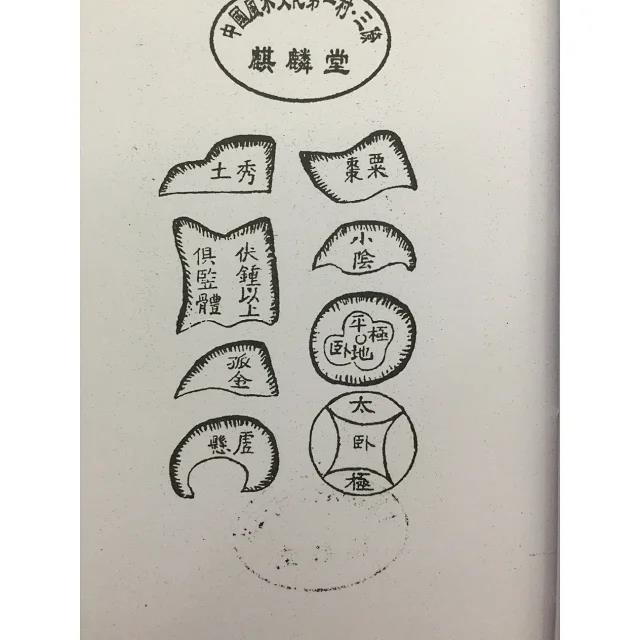 中國風水文化第一村·三僚
麒麟堂
粟棗
小陰
平地
極
卧
太
卧
極
秀土
伏鍾以上
俱監體
孤金
虛懸